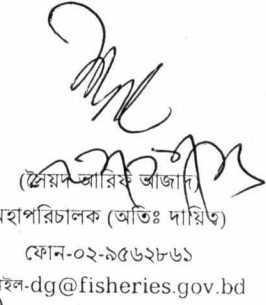 (সৈয়দ আরিফ আজাদ)
মহাপরিচালক (অতিঃ দায়িত্ব)
ফোন-০২-৯৫৬২৮৬১
ইল-dg@fisheries.gov.bd